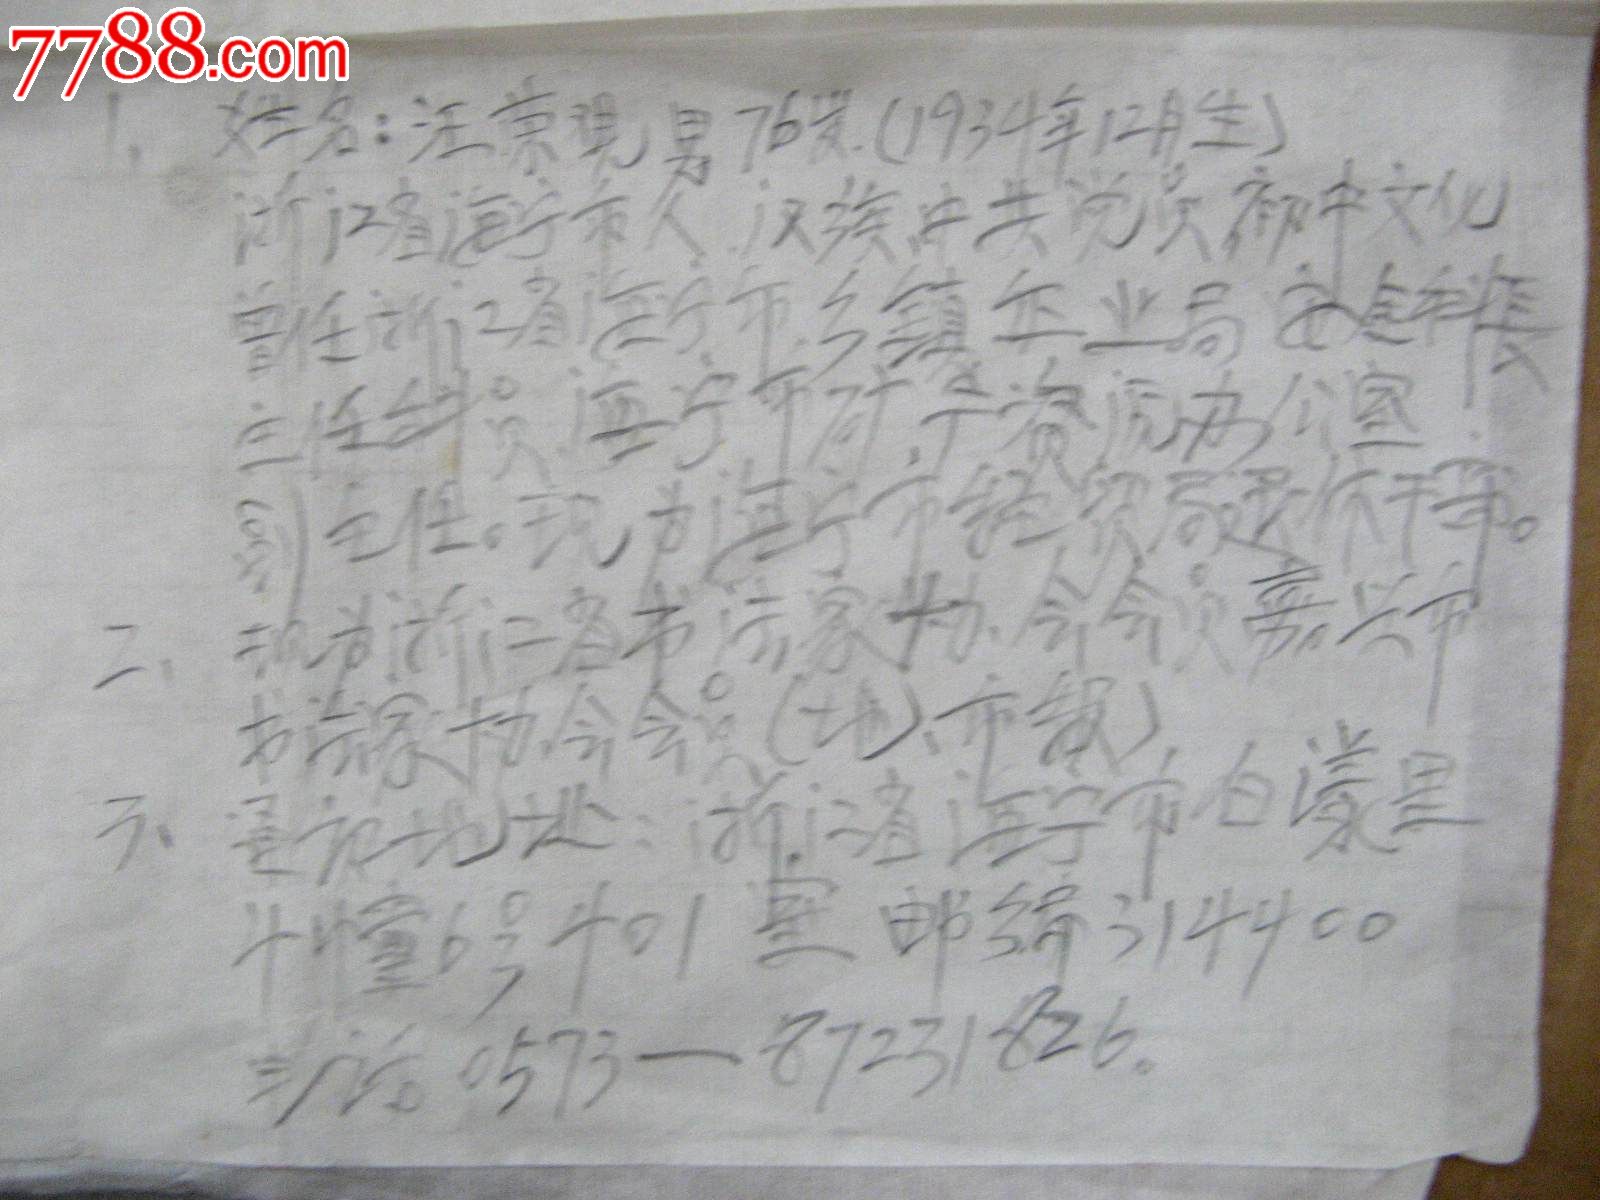 7788.com
1. 姓名:汪景观 男 76岁.(1934年12月生)
浙江省海宁市人.汉族.中共党员.初中文化
曾任浙江省海宁市.乡镇企业局 科长
主任科员.海宁市 办公室
副主任。现为海宁市经贸局退休干部。
二、现为浙江省书法家协会会员 嘉兴市
书法家协会会员(地、市级)
三、通讯地址:浙江省海宁市白漾里
幢6号401室 邮编314400
电话。0573—87231826。